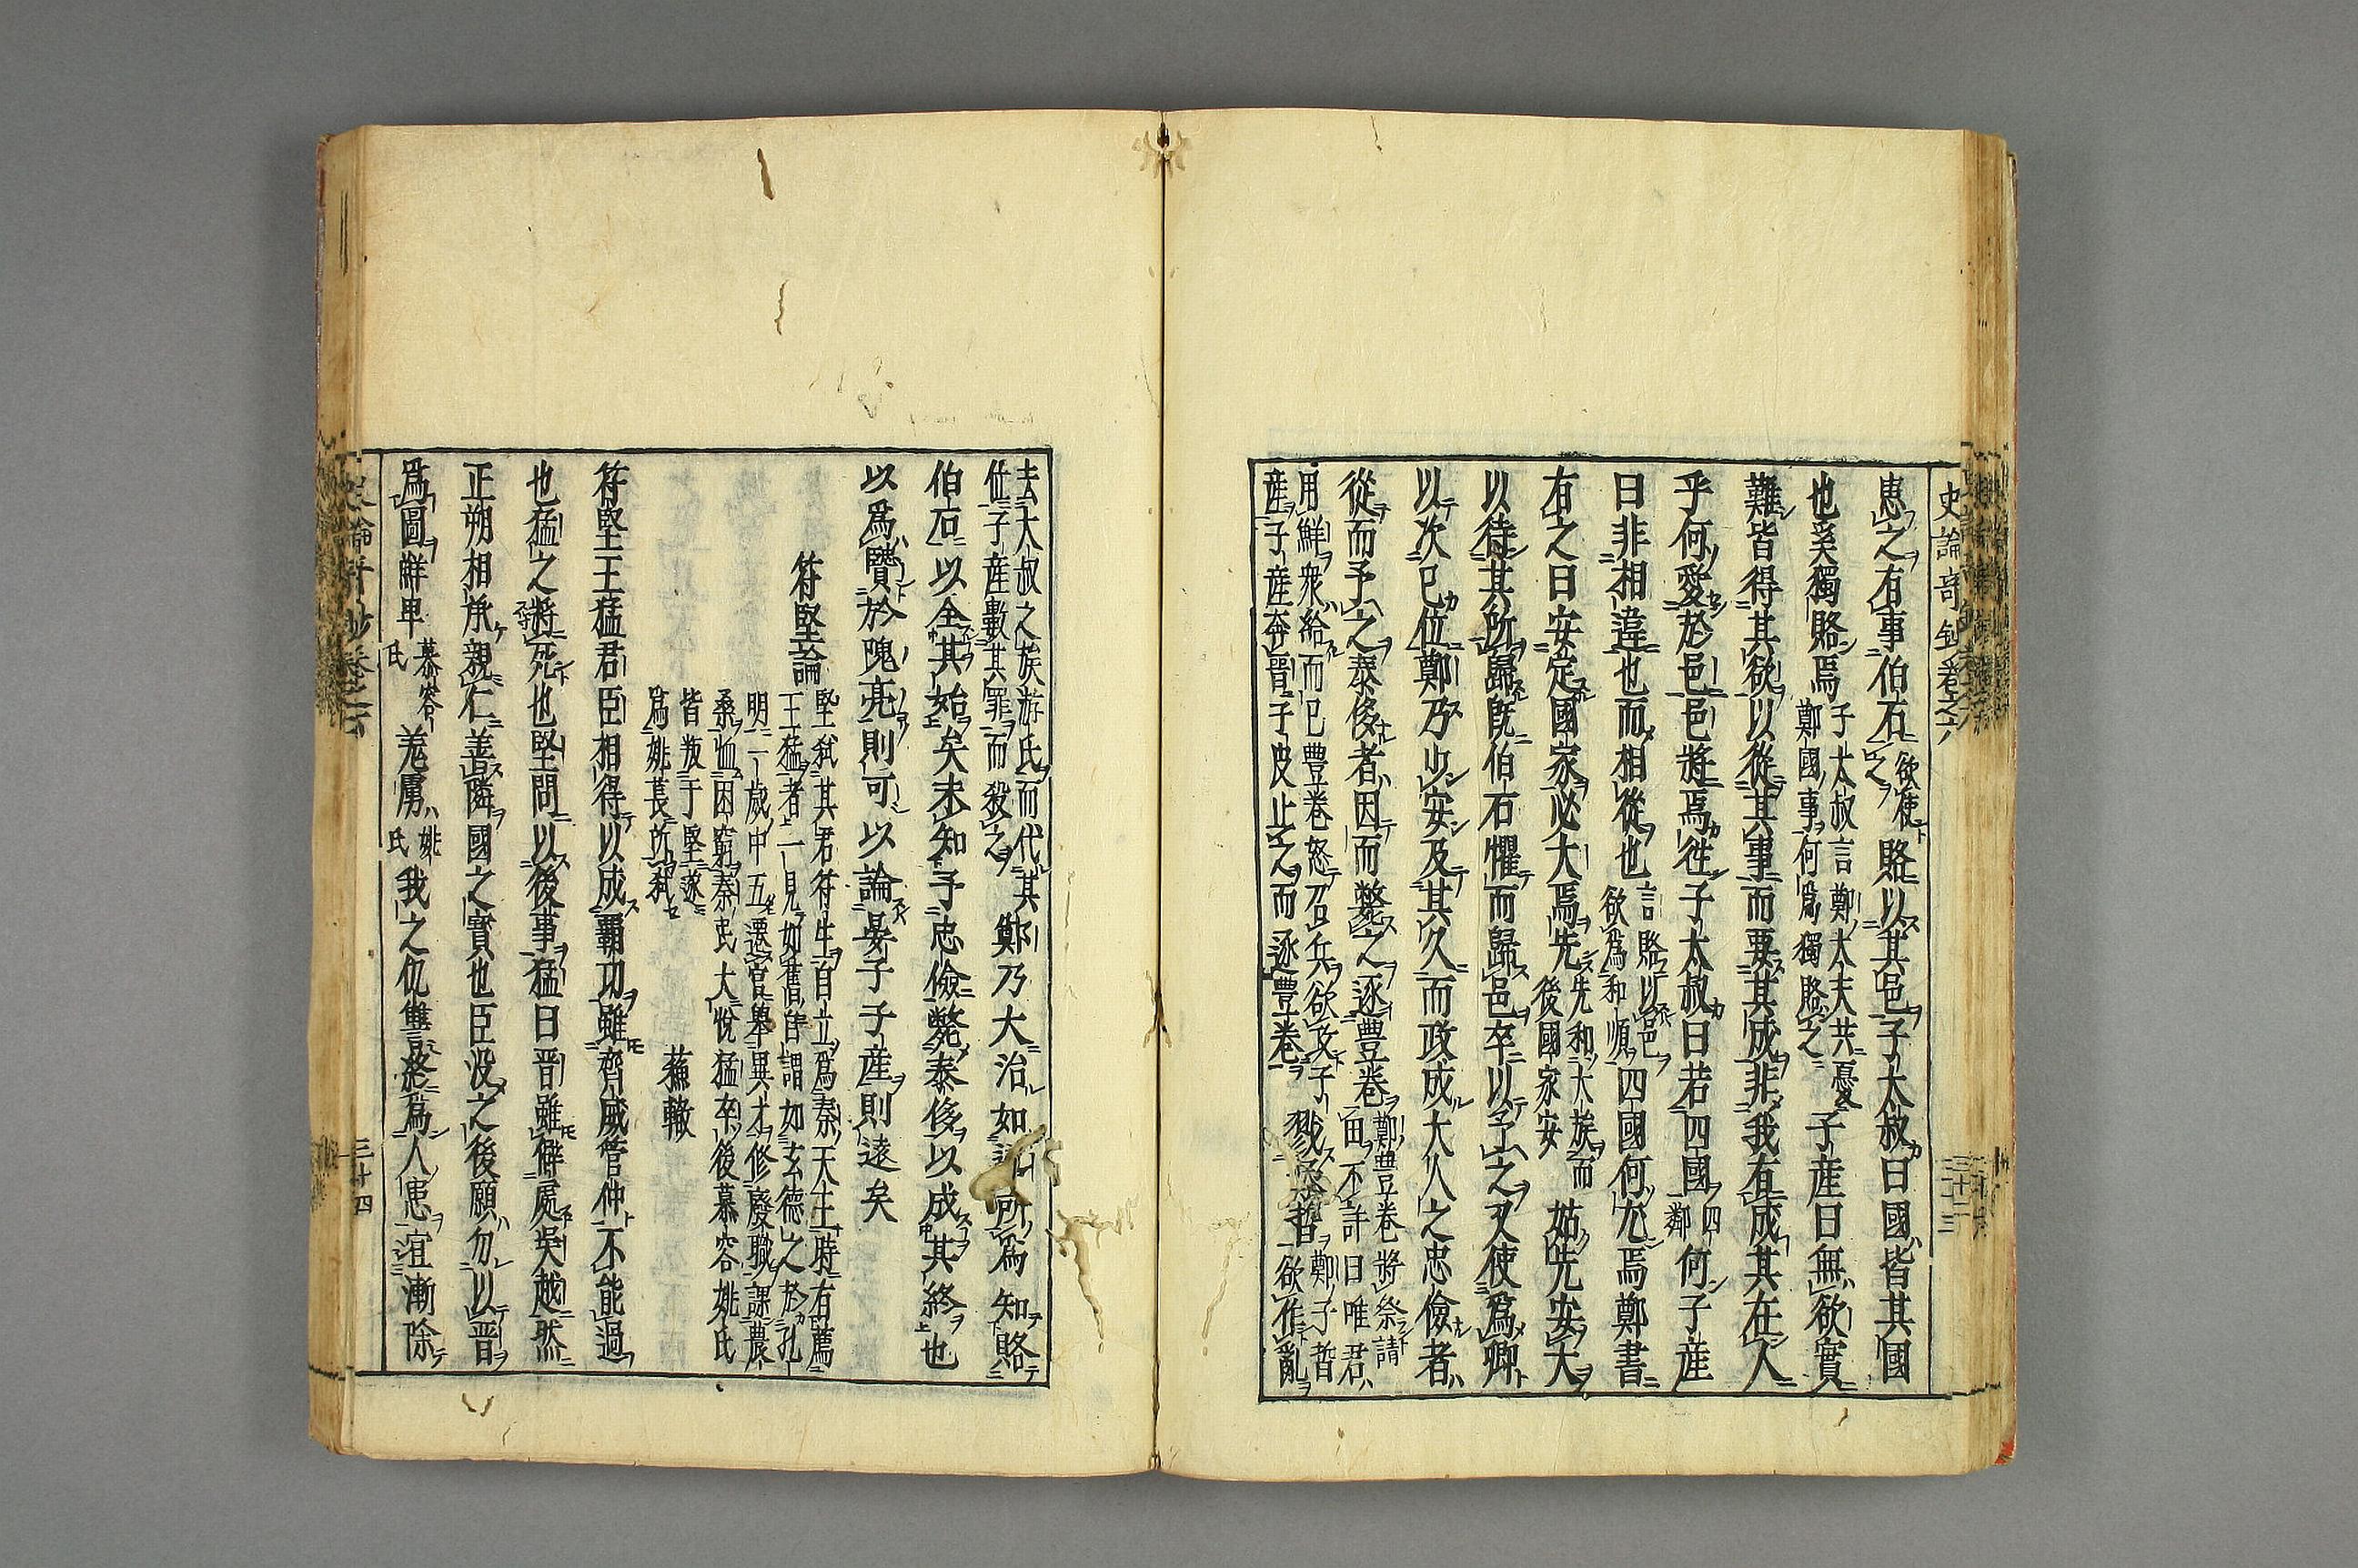 史論奇鈔卷之六
患之有事伯石欲使之賂以其邑子太叔曰國皆其國
也奚獨賂焉子太叔言鄭大夫共憂鄭國事何爲獨賂之子產曰無欲實
難皆得其欲以從其事而要其成非我有成其在人
乎何愛於邑邑將焉往子太叔曰若四國四鄰何子產
曰非相違也而相從也言賂以邑欲爲和順四國何尤焉鄭書
有之曰安定國家必大焉先先和大族而後國家安姑先安大
以待其所歸旣伯石懼而歸邑卒以予之又使爲卿
以次已位鄭乃少安及其久而政成大人之忠儉者
從而予之泰侈者因而斃之逐豐卷鄭豐卷將祭請田不許曰唯君
用鮮衆給而已豐卷怒召兵欲攻子產子產奔晉子皮止之而逐豐卷戮子晳鄭子晳欲作亂
去大叔之族游氏而代其位子產數其罪而殺之鄭乃大治如所爲知賂
伯石以全其始矣未知予忠儉斃泰侈以成其終也
以爲賢於隗亮則可以論晏子子產則遠矣
符堅論
堅弑其君符生自立爲秦天王時有薦
王猛者一見如舊自謂如玄德之於孔
明一歲中五遷官舉異才修廢職課農
桑恤困窮秦民大悅猛卒後慕容姚氏
皆叛于堅遂
爲姚萇所弑
蘇轍
符堅王猛君臣相得以成霸功雖齊威管仲不能過
也猛之將死也堅問以後事猛曰晉雖僻處吳越然
正朔相承親仁善隣國之寶也臣沒之後願勿以晉
爲圖鮮卑慕容氏羌虜姚氏我之仇讐終爲人患宜漸除
三十四